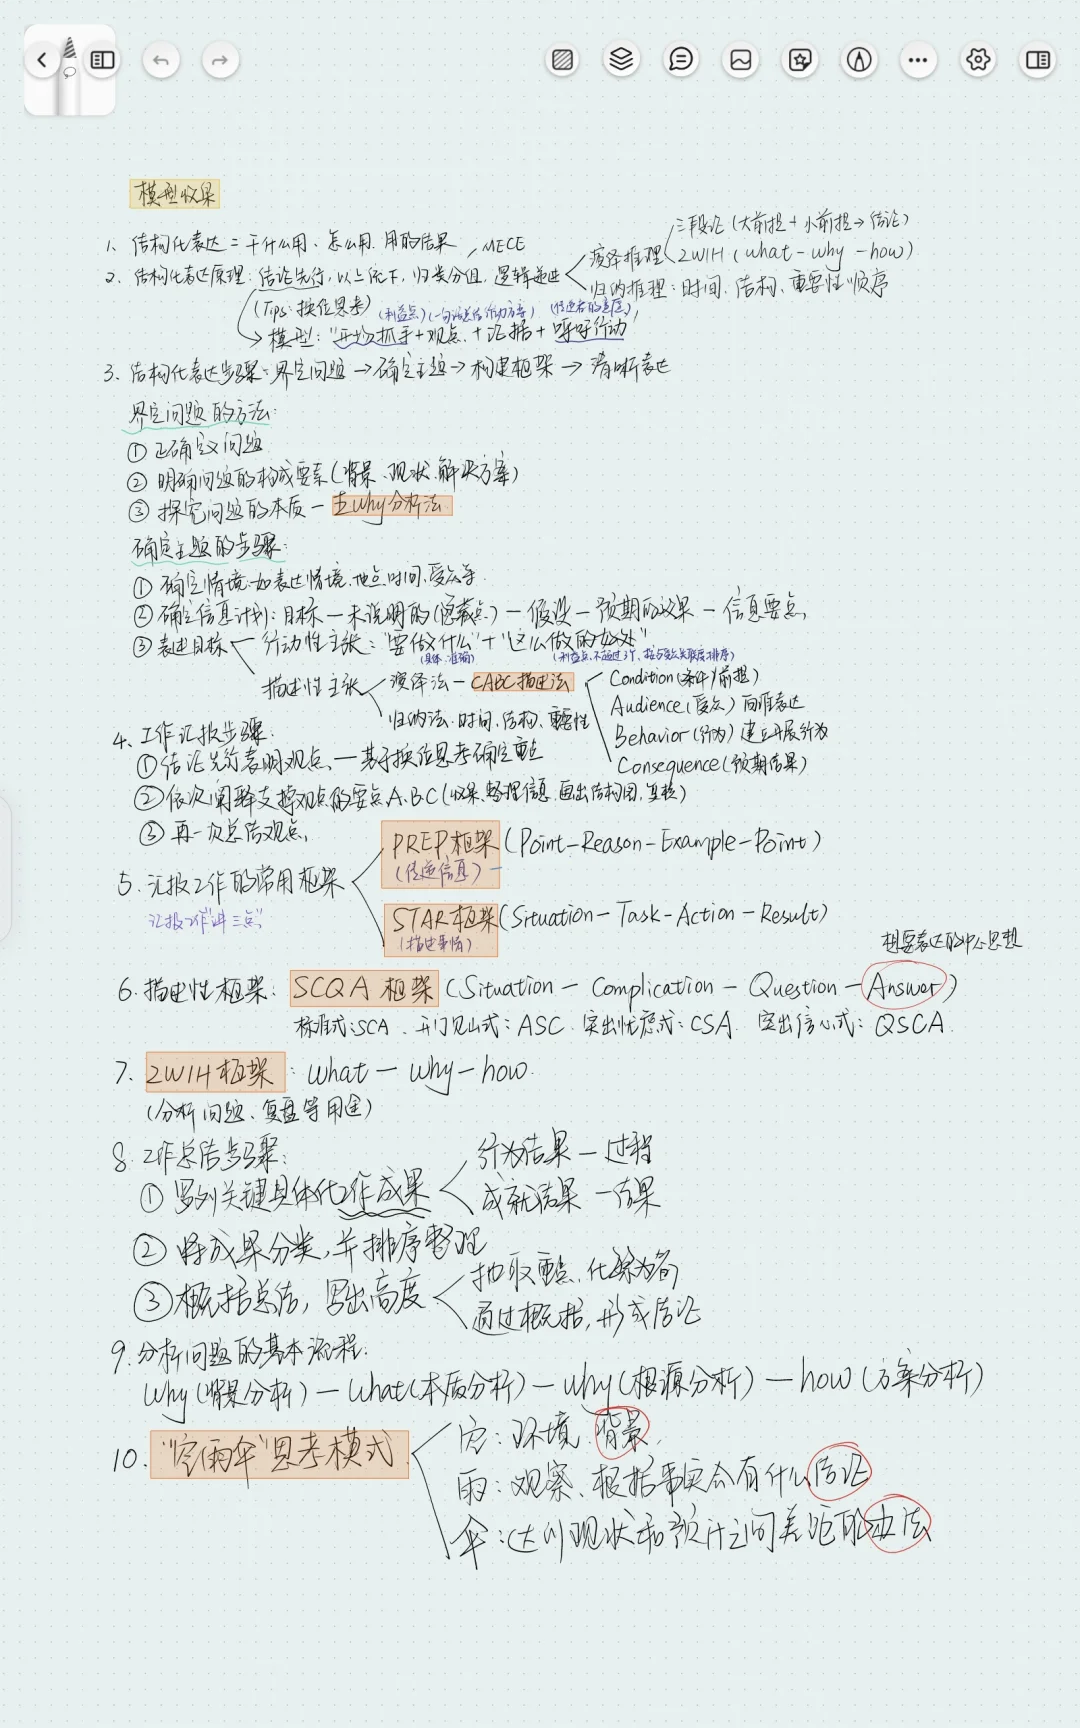 模型收集
1. 结构化表达 = 干什么用、怎么用、用的结果, MECE
2. 结构化表达原理: 结论先行, 以上统下, 归类分组, 逻辑递进
演绎推理
三段论 (大前提 + 小前提 → 结论)
2W1H (what - why - how)
归纳推理: 时间、结构、重要性顺序
(Tips: 换位思考)
(利益点) (一句话总结行动方案)
→ 模型: "开场抓手 + 观点 + 论据 + 呼吁行动
3. 结构化表达步骤: 界定问题 → 确定主题 → 构建框架 → 清晰表达
界定问题的方法:
① 正确定义问题
② 明确问题的构成要素 (背景、现状、解决方案)
③ 探究问题的本质 — 5why分析法
确定主题的步骤:
① 确定情境: 如表达情境、地点、时间、受众等
② 确定信息计划: 目标 — 未说明的 (隐藏点) — 假设 — 预期的效果 — 信息要点
③ 表述目标
行动性主张: "要做什么" + "这么做的好处"
(具体、准确)
(利益点、不超过3个、按与受众关联度排序)
描述性主张
演绎法 — CABC描述法
Condition (条件/前提)
Audience (受众) 向谁表达
Behavior (行为) 建立开展行为
Consequence (预期结果)
归纳法: 时间、结构、重要性
4. 工作汇报步骤:
① 结论先行表明观点、— 基于换位思考确定重点
② 依次阐释支撑观点的要点A、B、C (收集、整理信息、画出结构图、复核)
③ 再一次总结观点
5. 汇报工作的常用框架
汇报工作"讲三点"
PREP框架 (Point-Reason-Example-Point)
(传递信息)
STAR框架 (Situation-Task-Action-Result)
(描述事情)
想要表达的中心思想
6. 描述性框架: SCQA 框架 (Situation - Complication - Question - Answer)
标准式: SCA、开门见山式: ASC. 突出忧虑式: CSA. 突出信心式: QSCA.
7. 2W1H框架: what - why - how.
(分析问题、复盘等用途)
8. 工作总结步骤:
① 罗列关键具体化工作成果
行为结果 — 过程
成就结果 — 结果
② 将成果分类, 并排序整理
③ 概括总结, 写出高度
抽取重点, 化繁为简
通过概括, 形成结论
9. 分析问题的基本流程:
why (背景分析) — what (本质分析) — why (根源分析) — how (方案分析)
10. "空雨伞"思考模式
空: 环境、背景.
雨: 观察、根据事实会有什么结论
伞: 达到现状和预计之间差距的办法